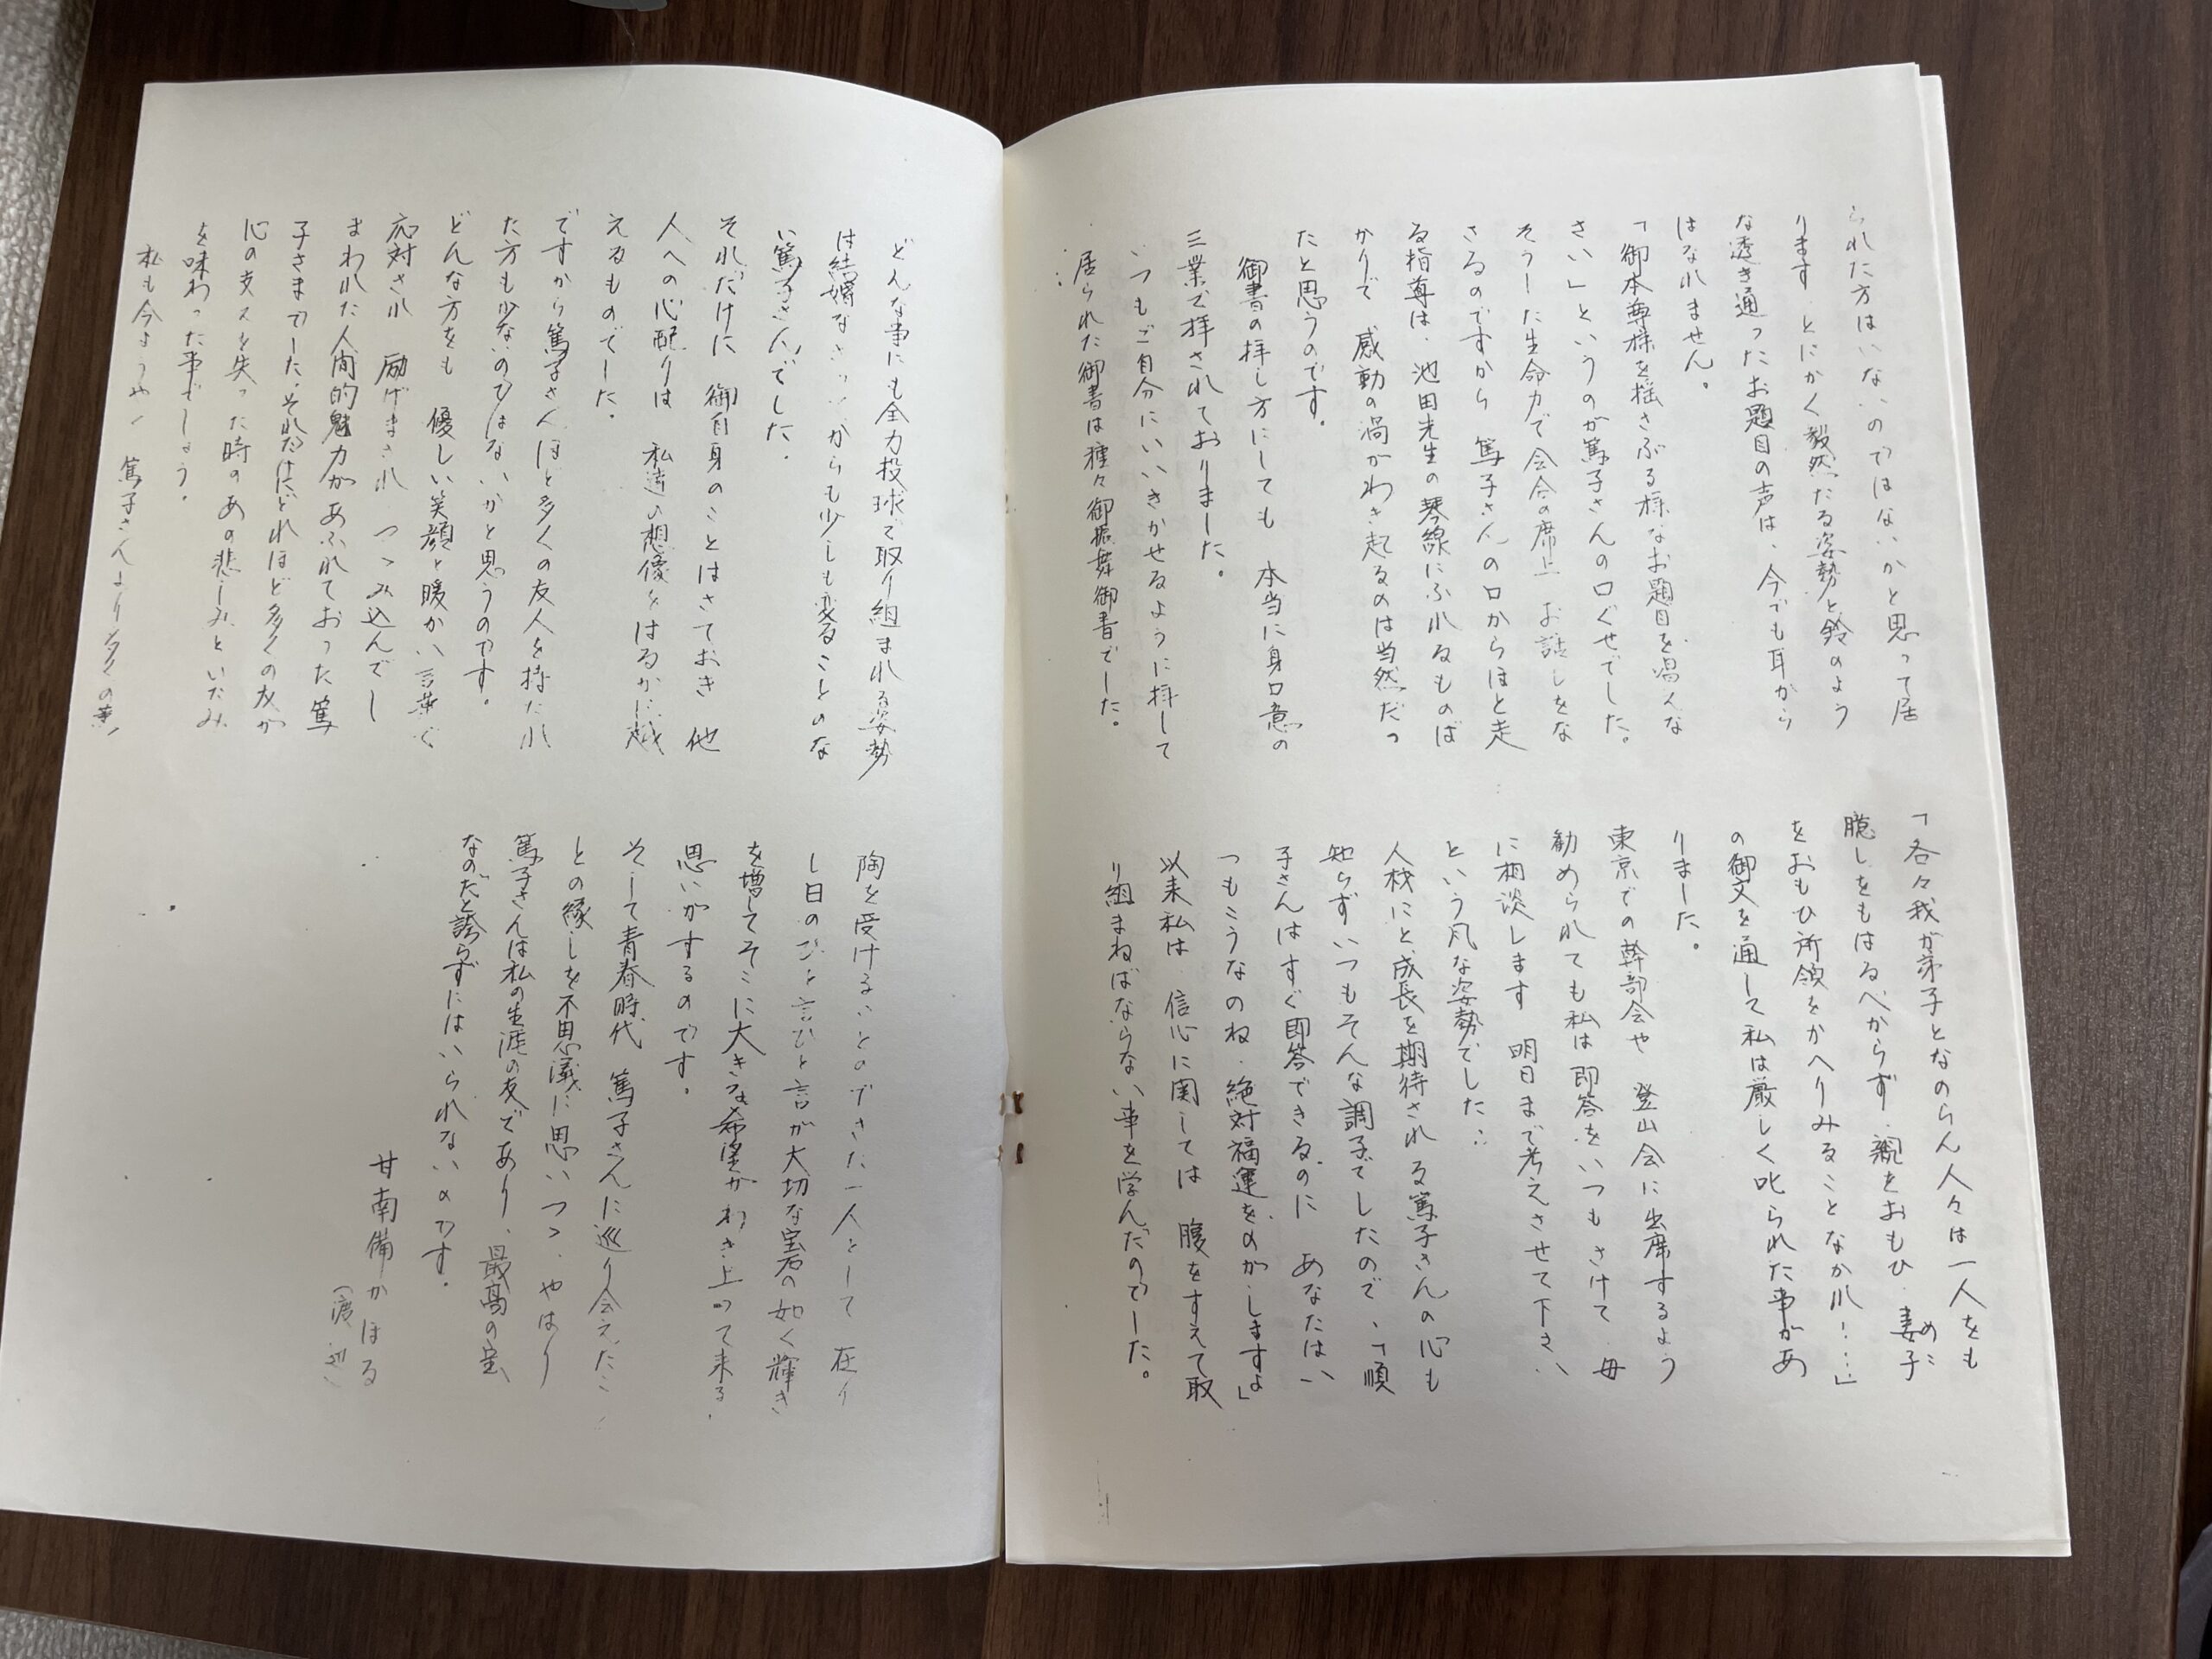 られた方はいないのではないかと思って居
ります とにかく毅然たる姿勢と鈴のよう
な透き通ったお題目の声は、今でも耳から
はなれません。
「御本尊様を揺さぶる様なお題目を唱えな
さい」というのが篤子さんの口ぐせでした。
そうした生命力で会合の席上 お話しをな
さるのですから 篤子さんの口からほと走
る指導は、池田先生の琴線にふれるものば
かりで 感動の渦がわき起るのは当然だっ
たと思うのです。
御書の拝し方にしても 本当に身口意の
三業で拝されておりました。
いつもご自分にいいきかせるように拝して
居られた御書は種々御振舞御書でした。
「各々我が弟子となのらん人々は一人をも
臆しをもはるべからず、親をおもひ、妻子
めこ
をおもひ所領をかへりみることなかれ!……」
の御文を通して私は厳しく叱られた事があ
りました。
東京での幹部会や 登山会に出席するよう
勧められても私は即答をいつもさけて 毎
に相談します 明日まで考えさせて下さい
という風な姿勢でした…
人材にと成長を期待される篤子さんの心も
知らずいつもそんな調子でしたので、「順
子さんはすぐ即答できるのに あなたはい
つもこうなのね、絶対福運をのがしますよ」
以来私は 信心に関しては 腹をすえて取
り組まねばならない事を学んだのでした。
どんな事にも全力投球で取り組まれる姿勢
は結婚なさってからも少しも変ることのな
い篤子さんでした。
それだけに 御自身のことはさておき 他
人への心配りは 私達の想像をはるかに越
えるものでした。
ですから篤子さんほど多くの友人を持たれ
た方も少ないのではないかと思うのです。
どんな方をも 優しい笑顔と暖かい言葉で
応対され 励げまされ つつみ込んでし
まわれた人間的魅力があふれておった篤
子さまでした。それだけにどれほど多くの友が
心の支えを失った時のあの悲しみといたみ
を味わった事でしょう。
私も今ようやく 篤子さんより多くの薫
陶を受けることのできた一人として 在り
し日のひと言ひと言が大切な宝石の如く輝き
を増してそこに大きな希望がわき上って来る
思いがするのです。
そして青春時代 篤子さんに巡り会えたこ
との縁しを不思議に思いつつ、やはり
篤子さんは私の生涯の友であり、最高の宝
なのだと誇らずにはいられないのです。
甘南備かほる